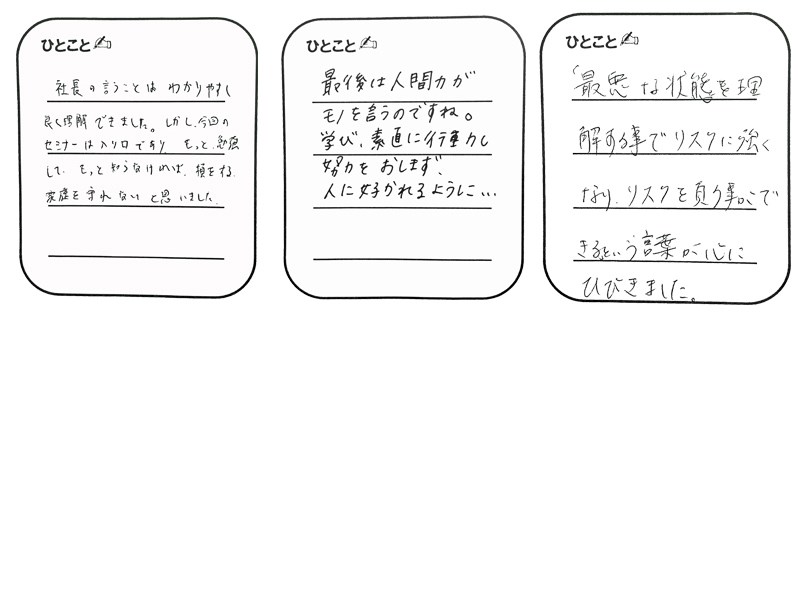 ひとこと
社長の言うことは わかりやすく
良く理解できました。しかし、今回の
セミナーは入り口であり、もっと、勉強
して、もっと知らなければ、損をする。
家庭を守れないと思いました。
ひとこと
最後は人間力が
モノを言うのですね。
学び、素直に行動し
努力をおしまず、
人に好かれるように…
ひとこと
「最悪な状態を理
解する事でリスクに強く
なり、リスクを負う事ができ
きる」という言葉が心に
ひびきました。